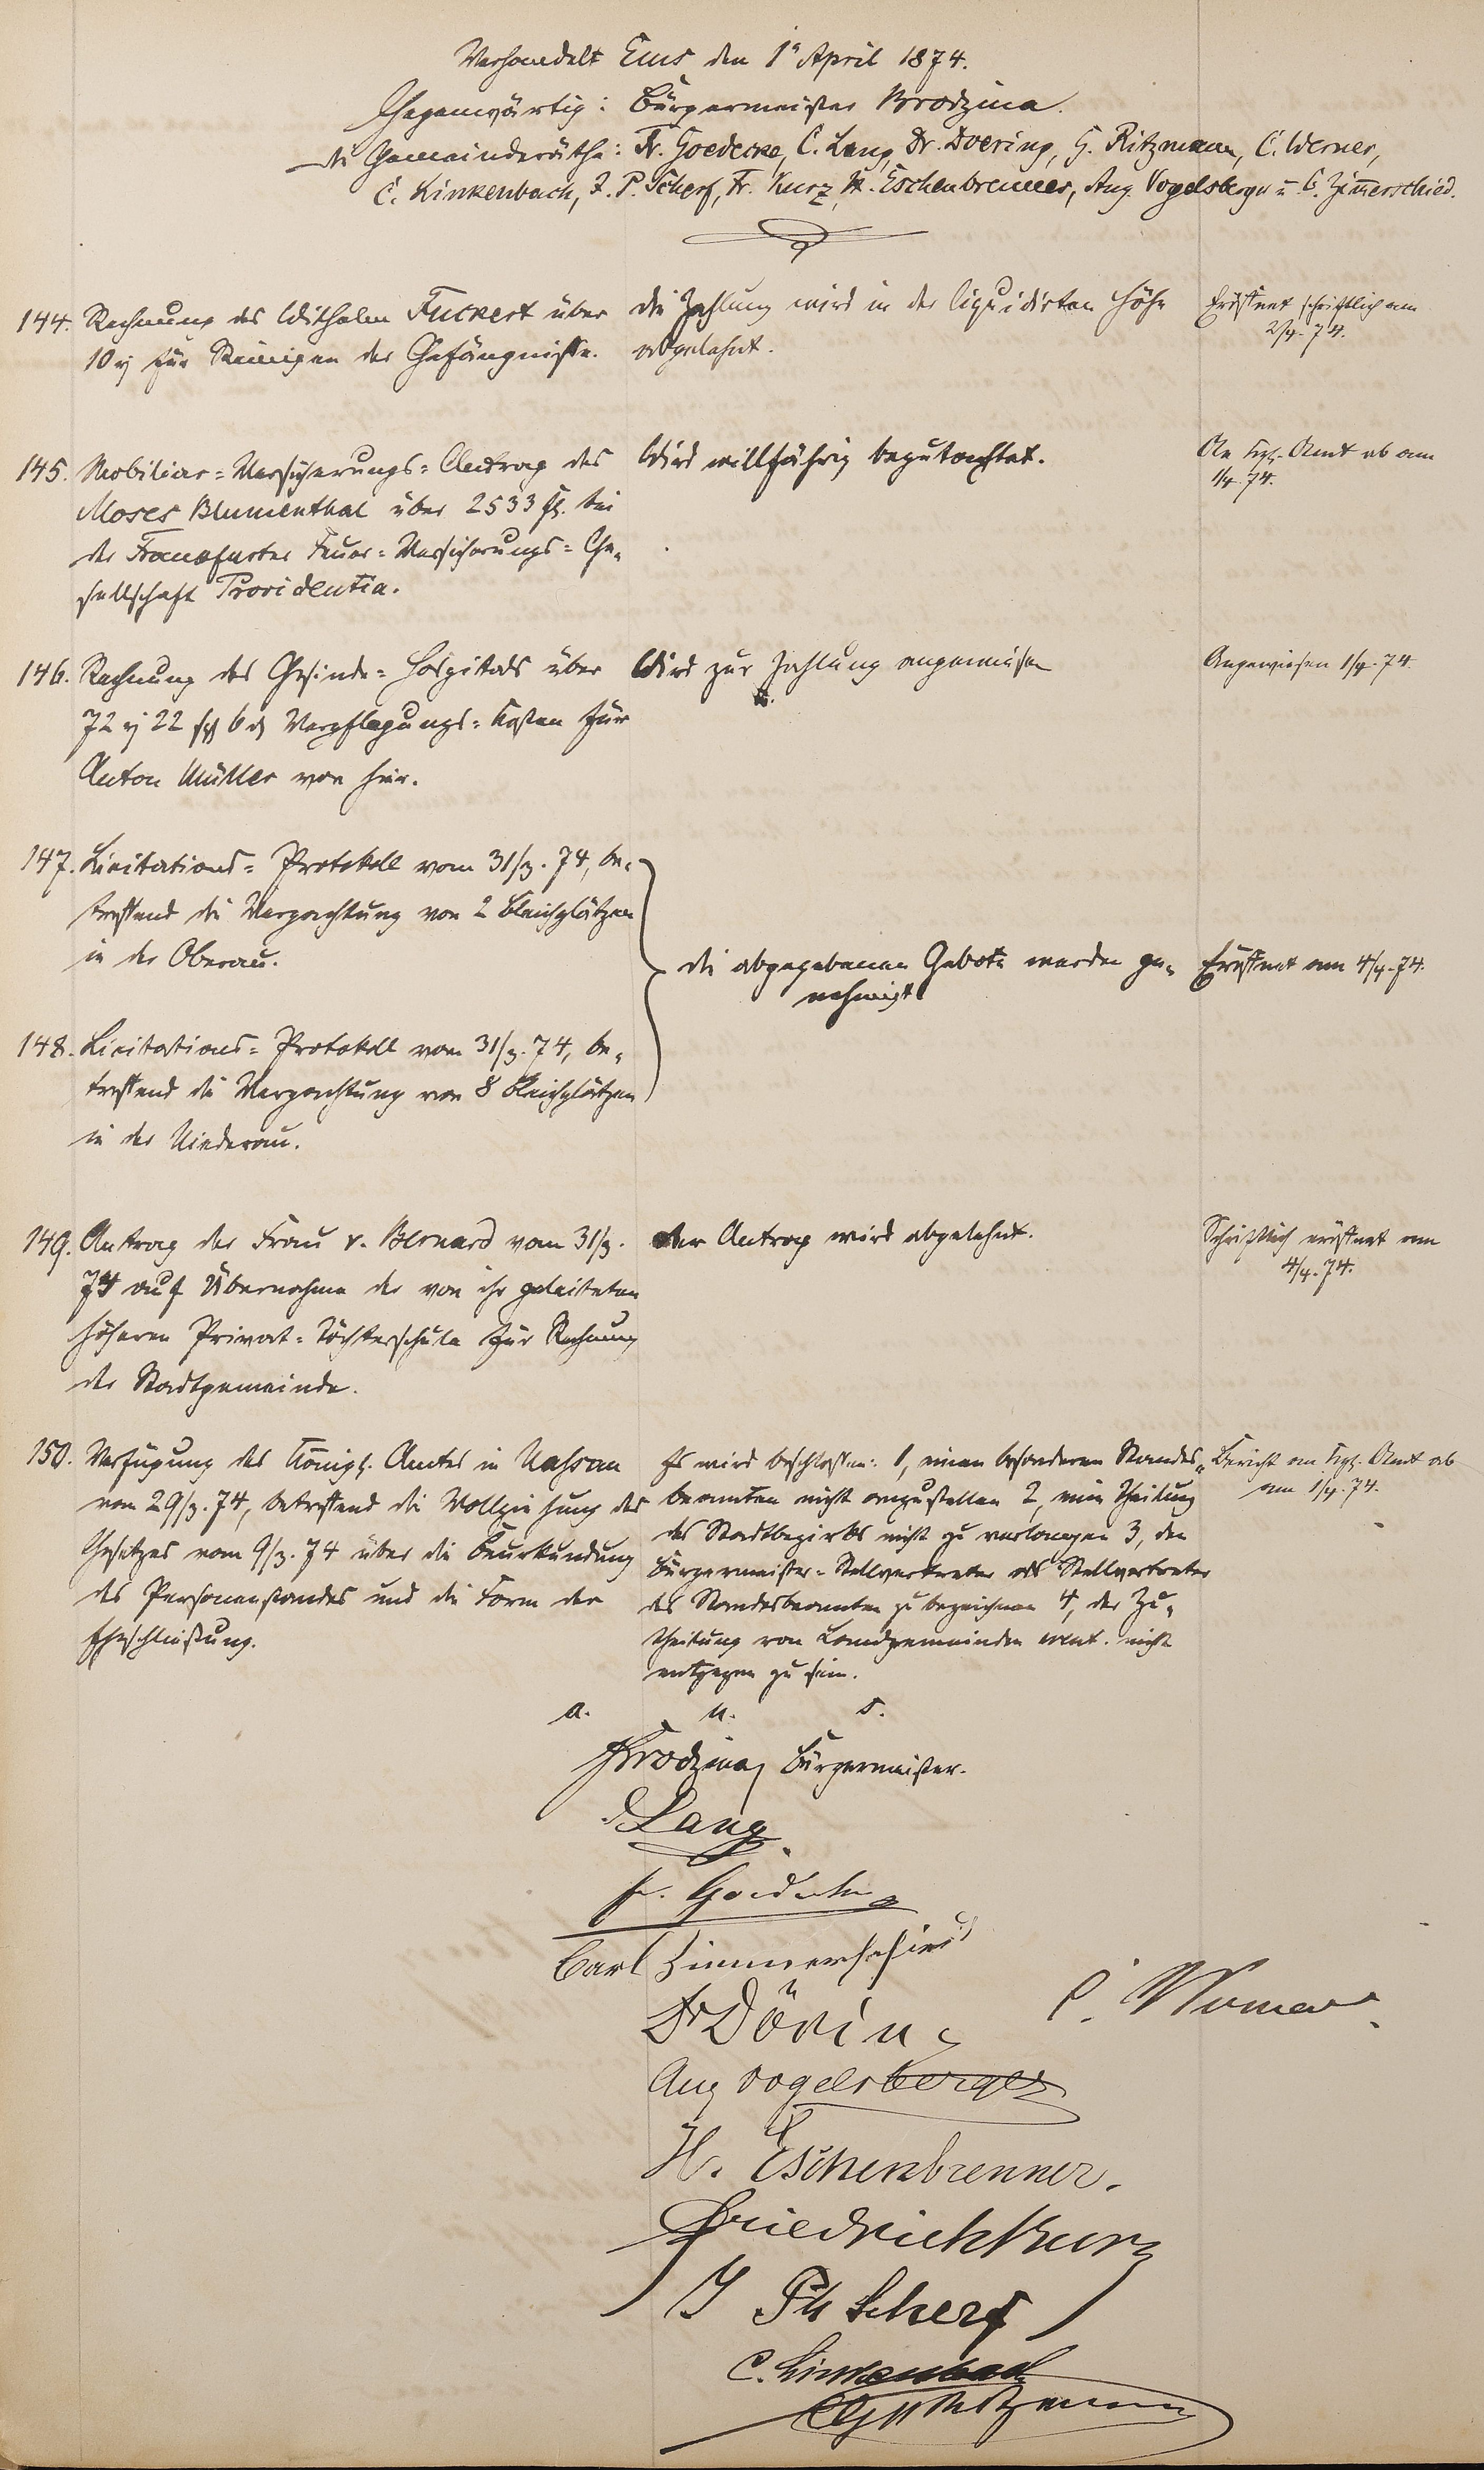 Verhandelt Ems den 1t April 1874.
Gegenwärtig: Bürgermeister Brodzina.
die Gemeinderäthe: Fr. Goedecke, C. Lang, Dr. Doering, G. Ritzmann, C. Werner,
C. Linkenbach, J. P. Scherf, Fr. Kurz, H. Eschenbrenner, Aug. Vogelsberger u. C. Zimerschied.
144. Rechnung des Wilhelm Fuckert über
10 rj für Reinigen der Gefängnisse.
die Zahlung wird in der liquidirten Höhe
abgelehnt.
Eröffnet schriftlich am
2/4. 74.
145. Mobiliar=Versicherungs=Antrag des
Moses Blumenthal über 2533 fl. bei
der Frankfurter Feuer=Versicherungs=Ge-
sellschaft Providentia.
Wird willfährig begutachtet.
An Kgl. Amt ab am
1/4. 74.
146. Rechnung des Gesinde=Hospitals über
72 rj 22 sg 6 d Verpflegungs=Kosten für
Anton Müller von hier.
Wird zur Zahlung angewiesen
Angewiesen 1/4. 74.
147. Licitations=Protokoll vom 31/3. 74, be-
treffend die Verpachtung von 2 Bleichplätzen
in der Oberau.
die abgegebenen Gebote werden ge-
nehmigt
Eröffnet am 4/4. 74.
148. Licitations=Protokoll vom 31/3. 74, be-
treffend die Verpachtung von 8 Bleichplätzen
in der Niederau.
149. Antrag der Frau v. Bernard vom 31/3.
74 auf Übernahme der von ihr geleiteten
höheren Privat=Töchterschule für Rechnung
der Stadtgemeinde.
der Antrag wird abgelehnt.
Schriftlich eröffnet am
4/4. 74.
150. Verfügung des Königl. Amtes in Nassau
vom 29/3. 74, betreffend die Vollziehung des
Gesetzes vom 9/3. 74 über die Beurkundung
des Personenstandes und die Form der
Eheschließung.
Es wird beschlossen: 1, einen besonderen Standes-
beamten nicht anzustellen 2, eine Theilung
des Stadtbezirks nicht zu verlangen 3, den
Bürgermeister=Stellvertreter als Stellvertreter
des Standesbeamten zu bezeichnen 4, der Zu-
theilung von Landgemeinden event. nicht
entgegen zu sein.
Bericht an Kgl. Amt ab
am 1/4. 74.
a. u. s.
Brodzina, Bürgermeister.
C Lang
Fr. Goedecke
Carl Zimmerschied
Dr Döring
C. Werner
Aug Vogelsberger
H. Eschenbrenner.
Friedrich Kurz
J Ph Scherf
C. Linkenbach
G Ritzmann